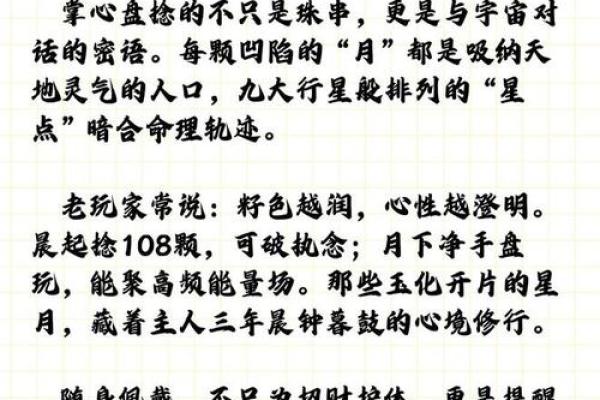 掌心盘捻的不只是珠串，更是与宇宙对
话的密语。每颗凹陷的“月”都是吸纳天
地灵气的入口，九大行星般排列的“星
点”暗合命理轨迹。
老玩家常说：籽色越润，心性越澄明。
晨起捻108颗，可破执念；月下净手盘
玩，能聚高频能量场。那些玉化开片的星
月，藏着主人三年晨钟暮鼓的心境修行。
随身佩戴，不只为招财护体，更是提醒